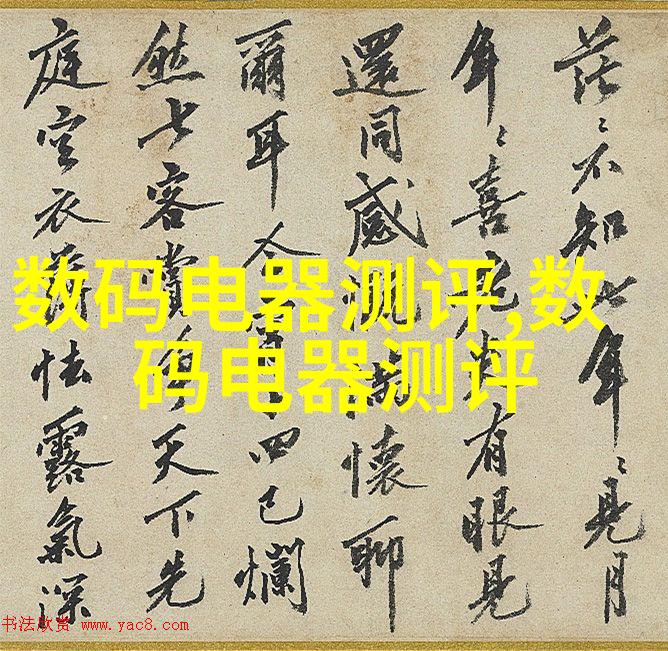 茫〻不知此年〻見月
年〻喜有眼見
還同感慨懷聊
爾耳今四已爛
然七客賞天下先
庭空衣薄怯露氣深
数码电器测评,数
码电器测评
书法欣赏 www.yac8.com